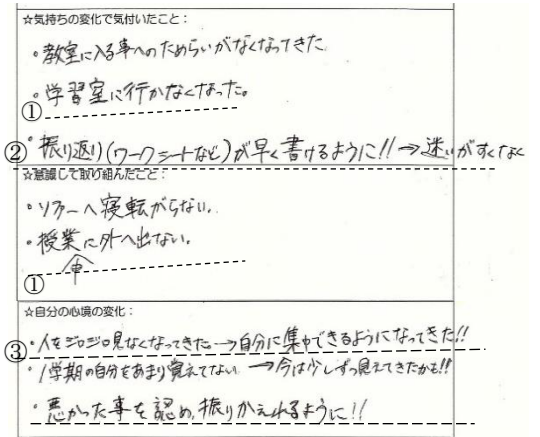 ☆気持ちの変化で気付いたこと：
・教室に入る事へのためらいがなくなってきた
・学習室に行かなくなった。
①
② ・振り返り(ワークシートなど)が早く書けるように!!→迷いがすくなく
☆意識して取り組んだこと：
・ソファーへ寝転がらない。
・授業中に外へ出ない。
①
☆自分の心境の変化：
③ ・人をジロジロ見なくなってきた。→自分に集中できるようになってきた!!
・1学期の自分をあまり覚えてない →今は少しずつ見えてきたかも!!
・悪かった事を認め、振りかえれるように!!